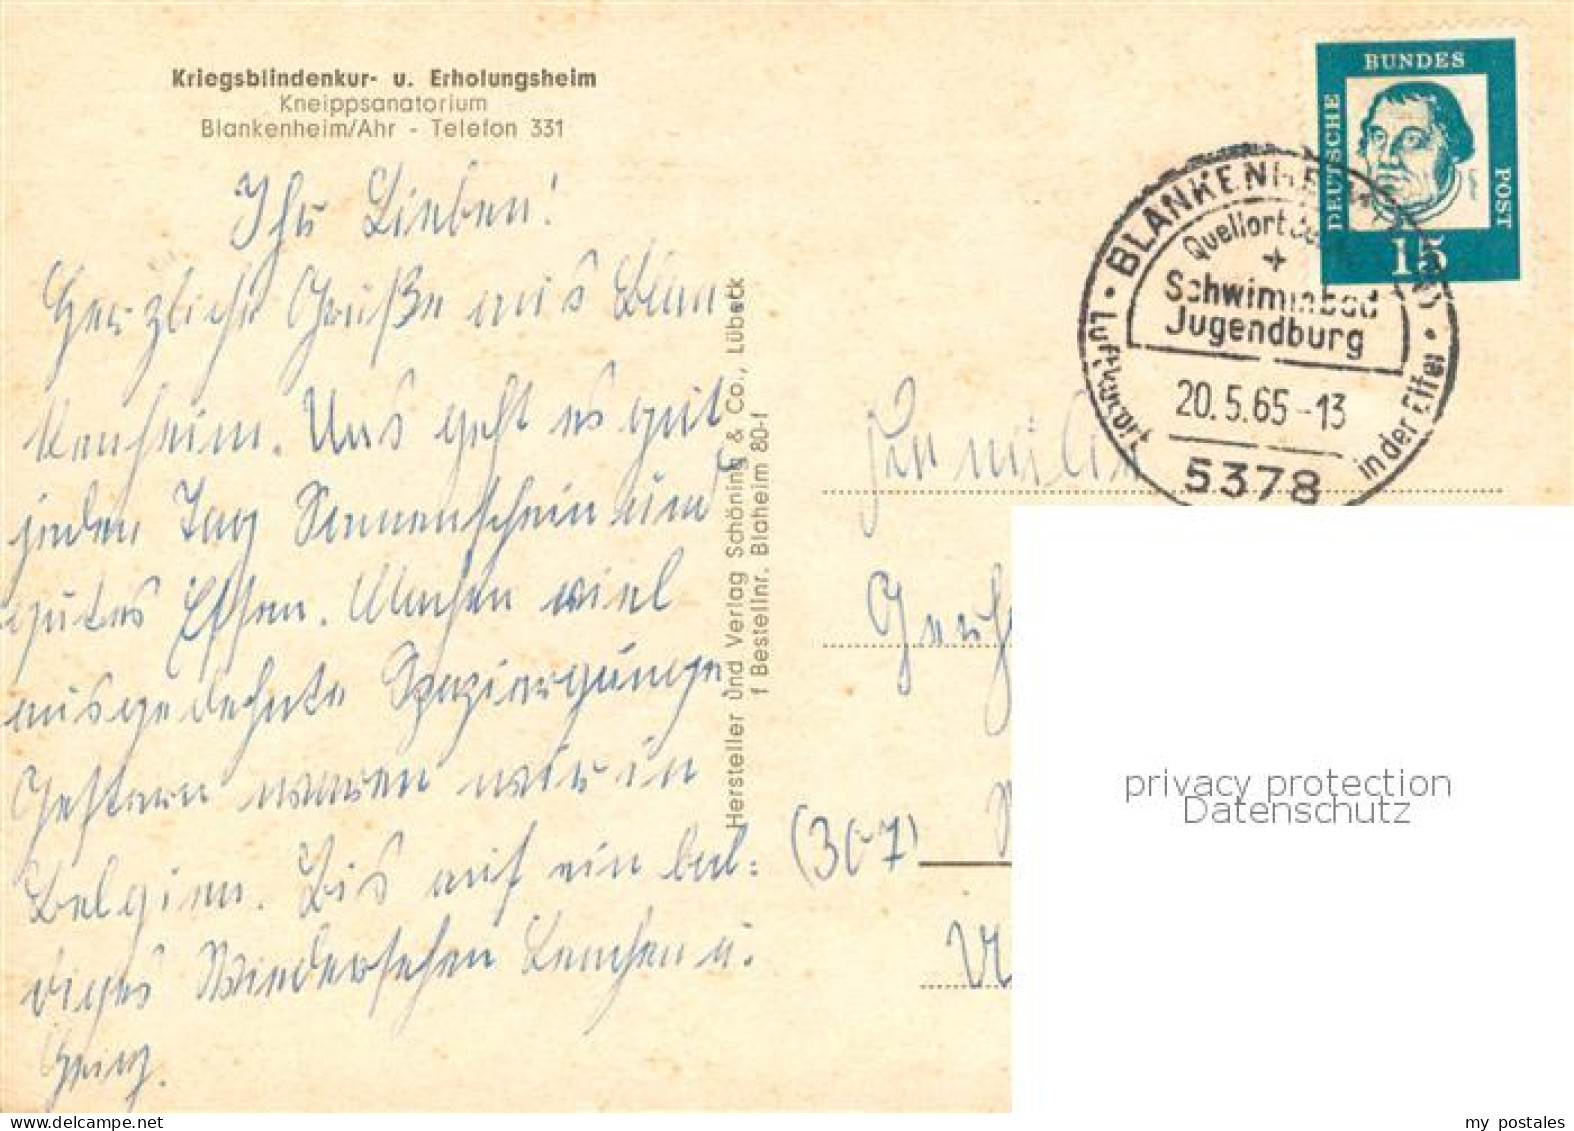 Kriegsblindenkur- u. Erholungsheim
Kneippsanatorium
Blankenheim/Ahr - Telefon 331
Ihr Lieben!
Herzliche Grüße aus Blan-
kenheim. Uns geht es gut
jeden Tag Sonnenschein und
gutes Essen. Machen viel
ausgedehnte Spaziergänge.
Gestern waren wir in
Belgien. Bis auf ein bal=
diges Wiedersehen Lenchen u.
Heinz.
Hersteller und Verlag Schöning & Co., Lübeck
f Bestellnr. Blaheim 80-f
DEUTSCHE BUNDES POST
15
BLANKENHEIM
Quellort der
Schwimmbad
Jugendburg
20.5.65-13
Luftkurort in der Eifel
5378
Familie
(307)
privacy protection
Datenschutz
my postales